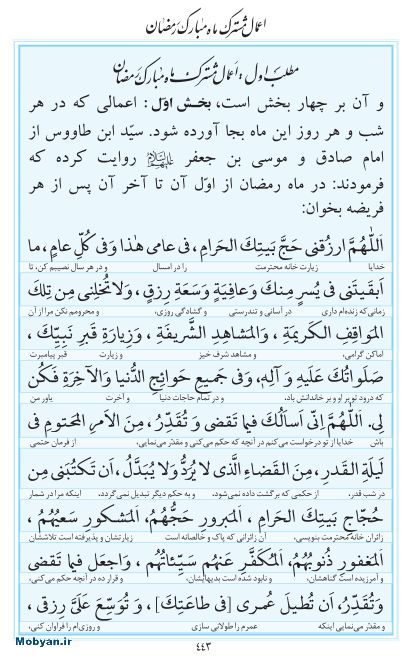 اعمال مشترک ماه مبارک رمضان
مطلب اول : اعمال مشترک ماه مبارک رمضان
و آن بر چهار بخش است، بخش اوّل: اعمالی که در هر
شب و هر روز این ماه بجا آورده شود. سیّد ابن طاووس از
امام صادق و موسی بن جعفر علیهما السلام روایت کرده که
فرمودند: در ماه رمضان از اوّل آن تا آخر آن پس از هر
فریضه بخوان:
اَللّٰهُمَّ ارْزُقْنی حَجَّ بَیْتِكَ الْحَرامِ، فی عامی هٰذا وَفی كُلِّ عامٍ، ما
خدایا زیارت خانه محترمت را در امسال و در هر سال نصیبم کن، تا
اَبْقَیْتَنی فی یُسْرٍ مِنْكَ وَعافِیَةٍ وَسَعَةِ رِزْقٍ، وَلا تُخْلِنی مِنْ تِلْكَ
زمانی که زنده‌ام داری در آسانی و تندرستی و گشادگی روزی، و محرومم نکن مرا از آن
الْمَواقِفِ الْكَریمَةِ ، وَالْمَشاهِدِ الشَّریفَةِ ، وَزِیارَةِ قَبْرِ نَبِیِّكَ ،
اماکن گرامی، و مشاهد شرف خیز و زیارت قبر پیامبرت
صَلَواتُكَ عَلَیْهِ وَ آلِهِ، وَفی جَمیعِ حَوائِجِ الدُّنْیا وَالْآخِرَةِ فَكُنْ
که درود تو بر او و بر خاندانش باد، و در تمام حاجات دنیا و آخرت یاور من
لی. اَللّٰهُمَّ اِنّی اَسْاَلُكَ فیما تَقْضی وَ تُقَدِّرُ ، مِنَ الْاَمْرِ الْمَحْتُومِ فی
باش خدایا از تو درخواست می‌کنم در آنچه که حکم می‌کنی و مقدّر می‌نمایی، از فرمان حتمی
لَیْلَةِ الْقَدْرِ ، مِنَ الْقَضاءِ الَّذی لا یُرَدُّ وَلا یُبَدَّلُ، اَنْ تَكْتُبَنی مِنْ
در شب قدر، از حکمی که برگشت داده نمی‌شود، و به حکم دیگر تبدیل نمی‌گردد، اینکه مرا در شمار
حُجّاجِ بَیْتِكَ الْحَرامِ ، الْمَبْرُورِ حَجُّهُمْ، الْمَشْكُورِ سَعْیُهُمْ ،
زائران خانه محترمت بنویسی، آن زائرانی که پاک و خالصانه است زیارتشان و پذیرفته است تلاششان
الْمَغْفُورِ ذُنُوبُهُمْ، الْمُكَفَّرِ عَنْهُمْ سَیِّئاتُهُمْ ، وَاجْعَلْ فیما تَقْضی
و آمرزیده است گناهشان، و نابود شده است بدیهایشان، و قرار ده در آنچه حکم می‌کنی،
وَتُقَدِّرُ، اَنْ تُطیلَ عُمْری [فی طاعَتِكَ] ، وَ تُوَسِّعَ عَلَیَّ رِزْقی ،
و مقدّر می‌نمایی اینکه عمرم را طولانی سازی و روزی‌ام را فراوان کنی،
۴۴۳
Mobyan.ir